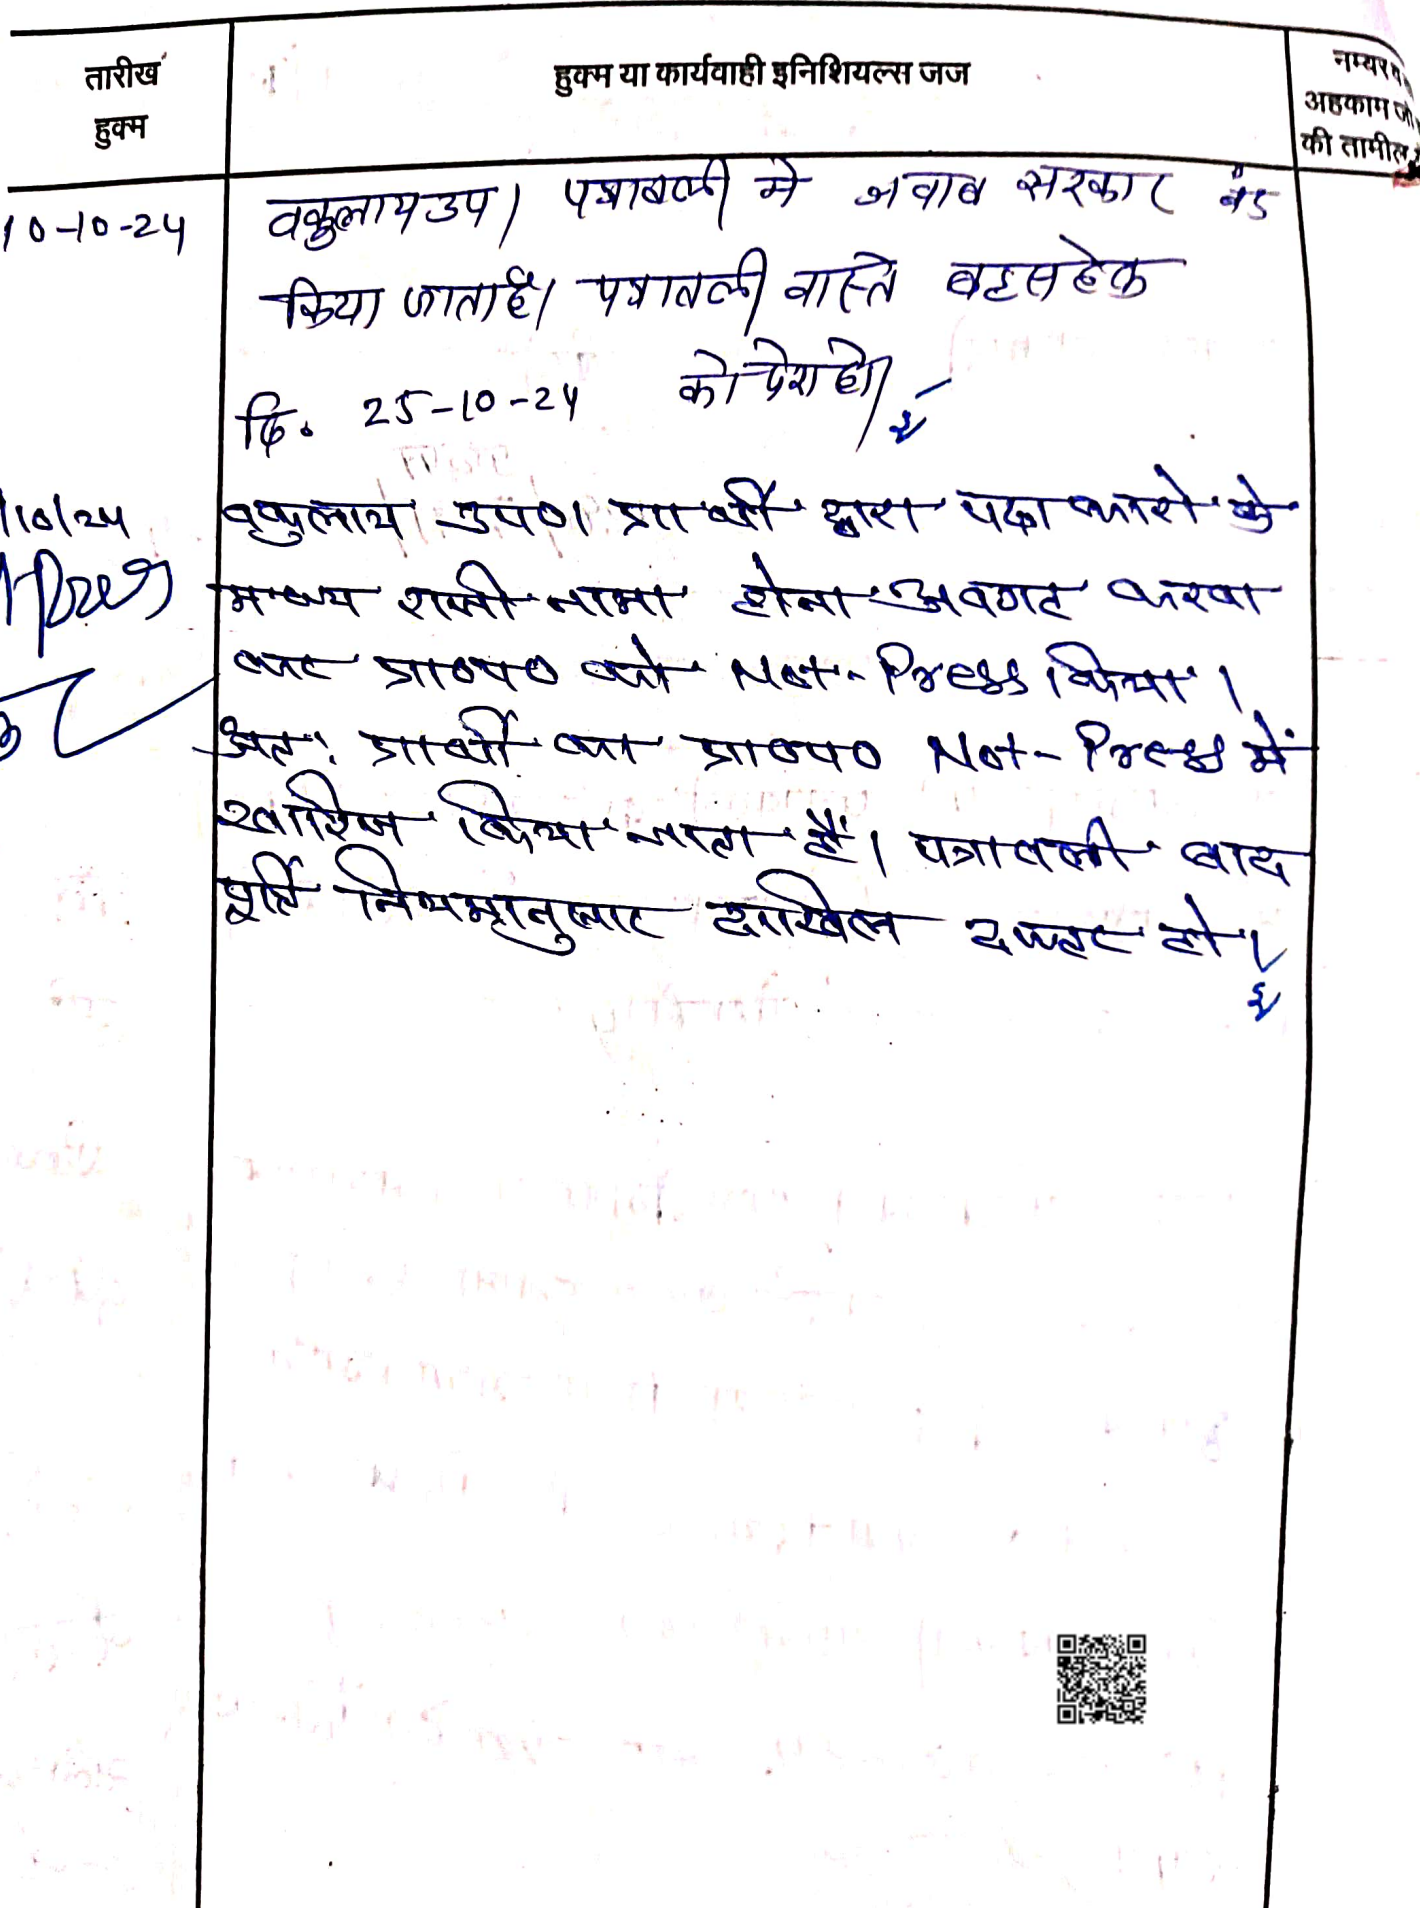 तारीख हुक्म
हुक्म या कार्यवाही इनिशियल्स जज
नम्बर व अहकाम जो की तामील
10-10-24
वकुलाय उप। पत्रावली मे जवाब सरकार बंद
किया जाता है। पत्रावली वास्ते बहस हेतु
दि. 25-10-24 को पेश हो।
/10/24
वकुलाय उप०। प्रार्थी द्वारा पक्षकारो के
मध्य राजीनामा होना अवगत करवा
कर प्रा०प० को Not-Press किया।
अतः प्रार्थी का प्रा०प० Not-Press में
खारिज किया जाता है। पत्रावली बाद
पूर्ति नियमानुसार दाखिल दफ्तर हो।